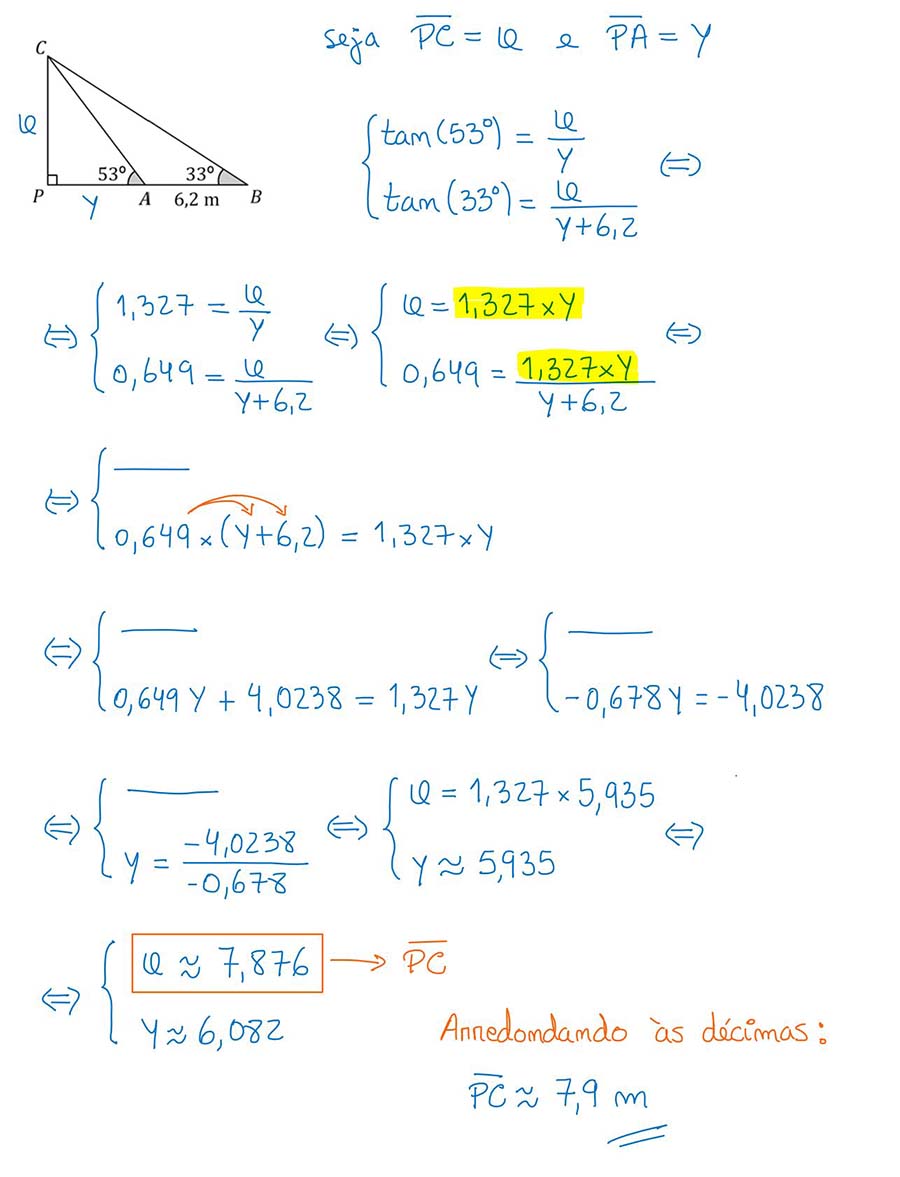 seja PC = x e PA = y
C
x
53° 33°
P y A 6,2 m B
{ tan(53°) = x/y
tan(33°) = x/(y+6,2) ⇔
⇔ { 1,327 = x/y
0,649 = x/(y+6,2)
⇔ { x = 1,327×y
0,649 = 1,327×y/(y+6,2) ⇔
⇔ { ———
0,649×(y+6,2) = 1,327×y
⇔ { ———
0,649y + 4,0238 = 1,327y
⇔ { ———
-0,678y = -4,0238
⇔ { ———
y = -4,0238/-0,678
⇔ { x = 1,327×5,935
y ≈ 5,935 ⇔
⇔ { x ≈ 7,876 → PC
y ≈ 6,082
Arredondando às décimas:
PC ≈ 7,9 m